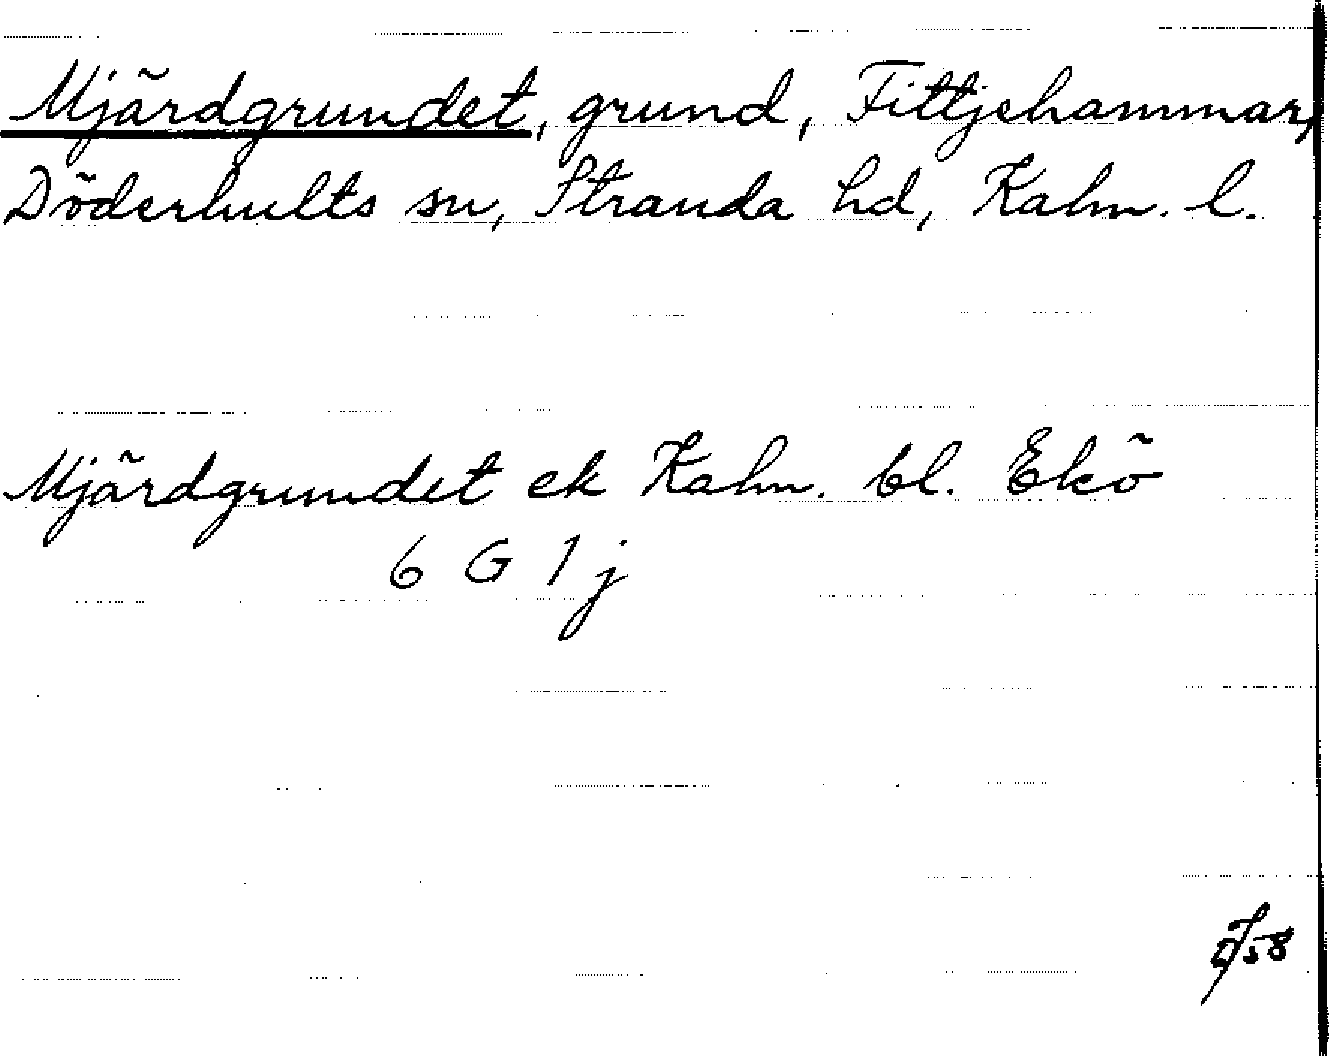 Mjärdgrundet, grund, Fittjehammar,
Döderhults sn, Stranda hd, Kalm. l.
Mjärdgrundet ek Kalm. bl. Ekö
6 G 1 j
58